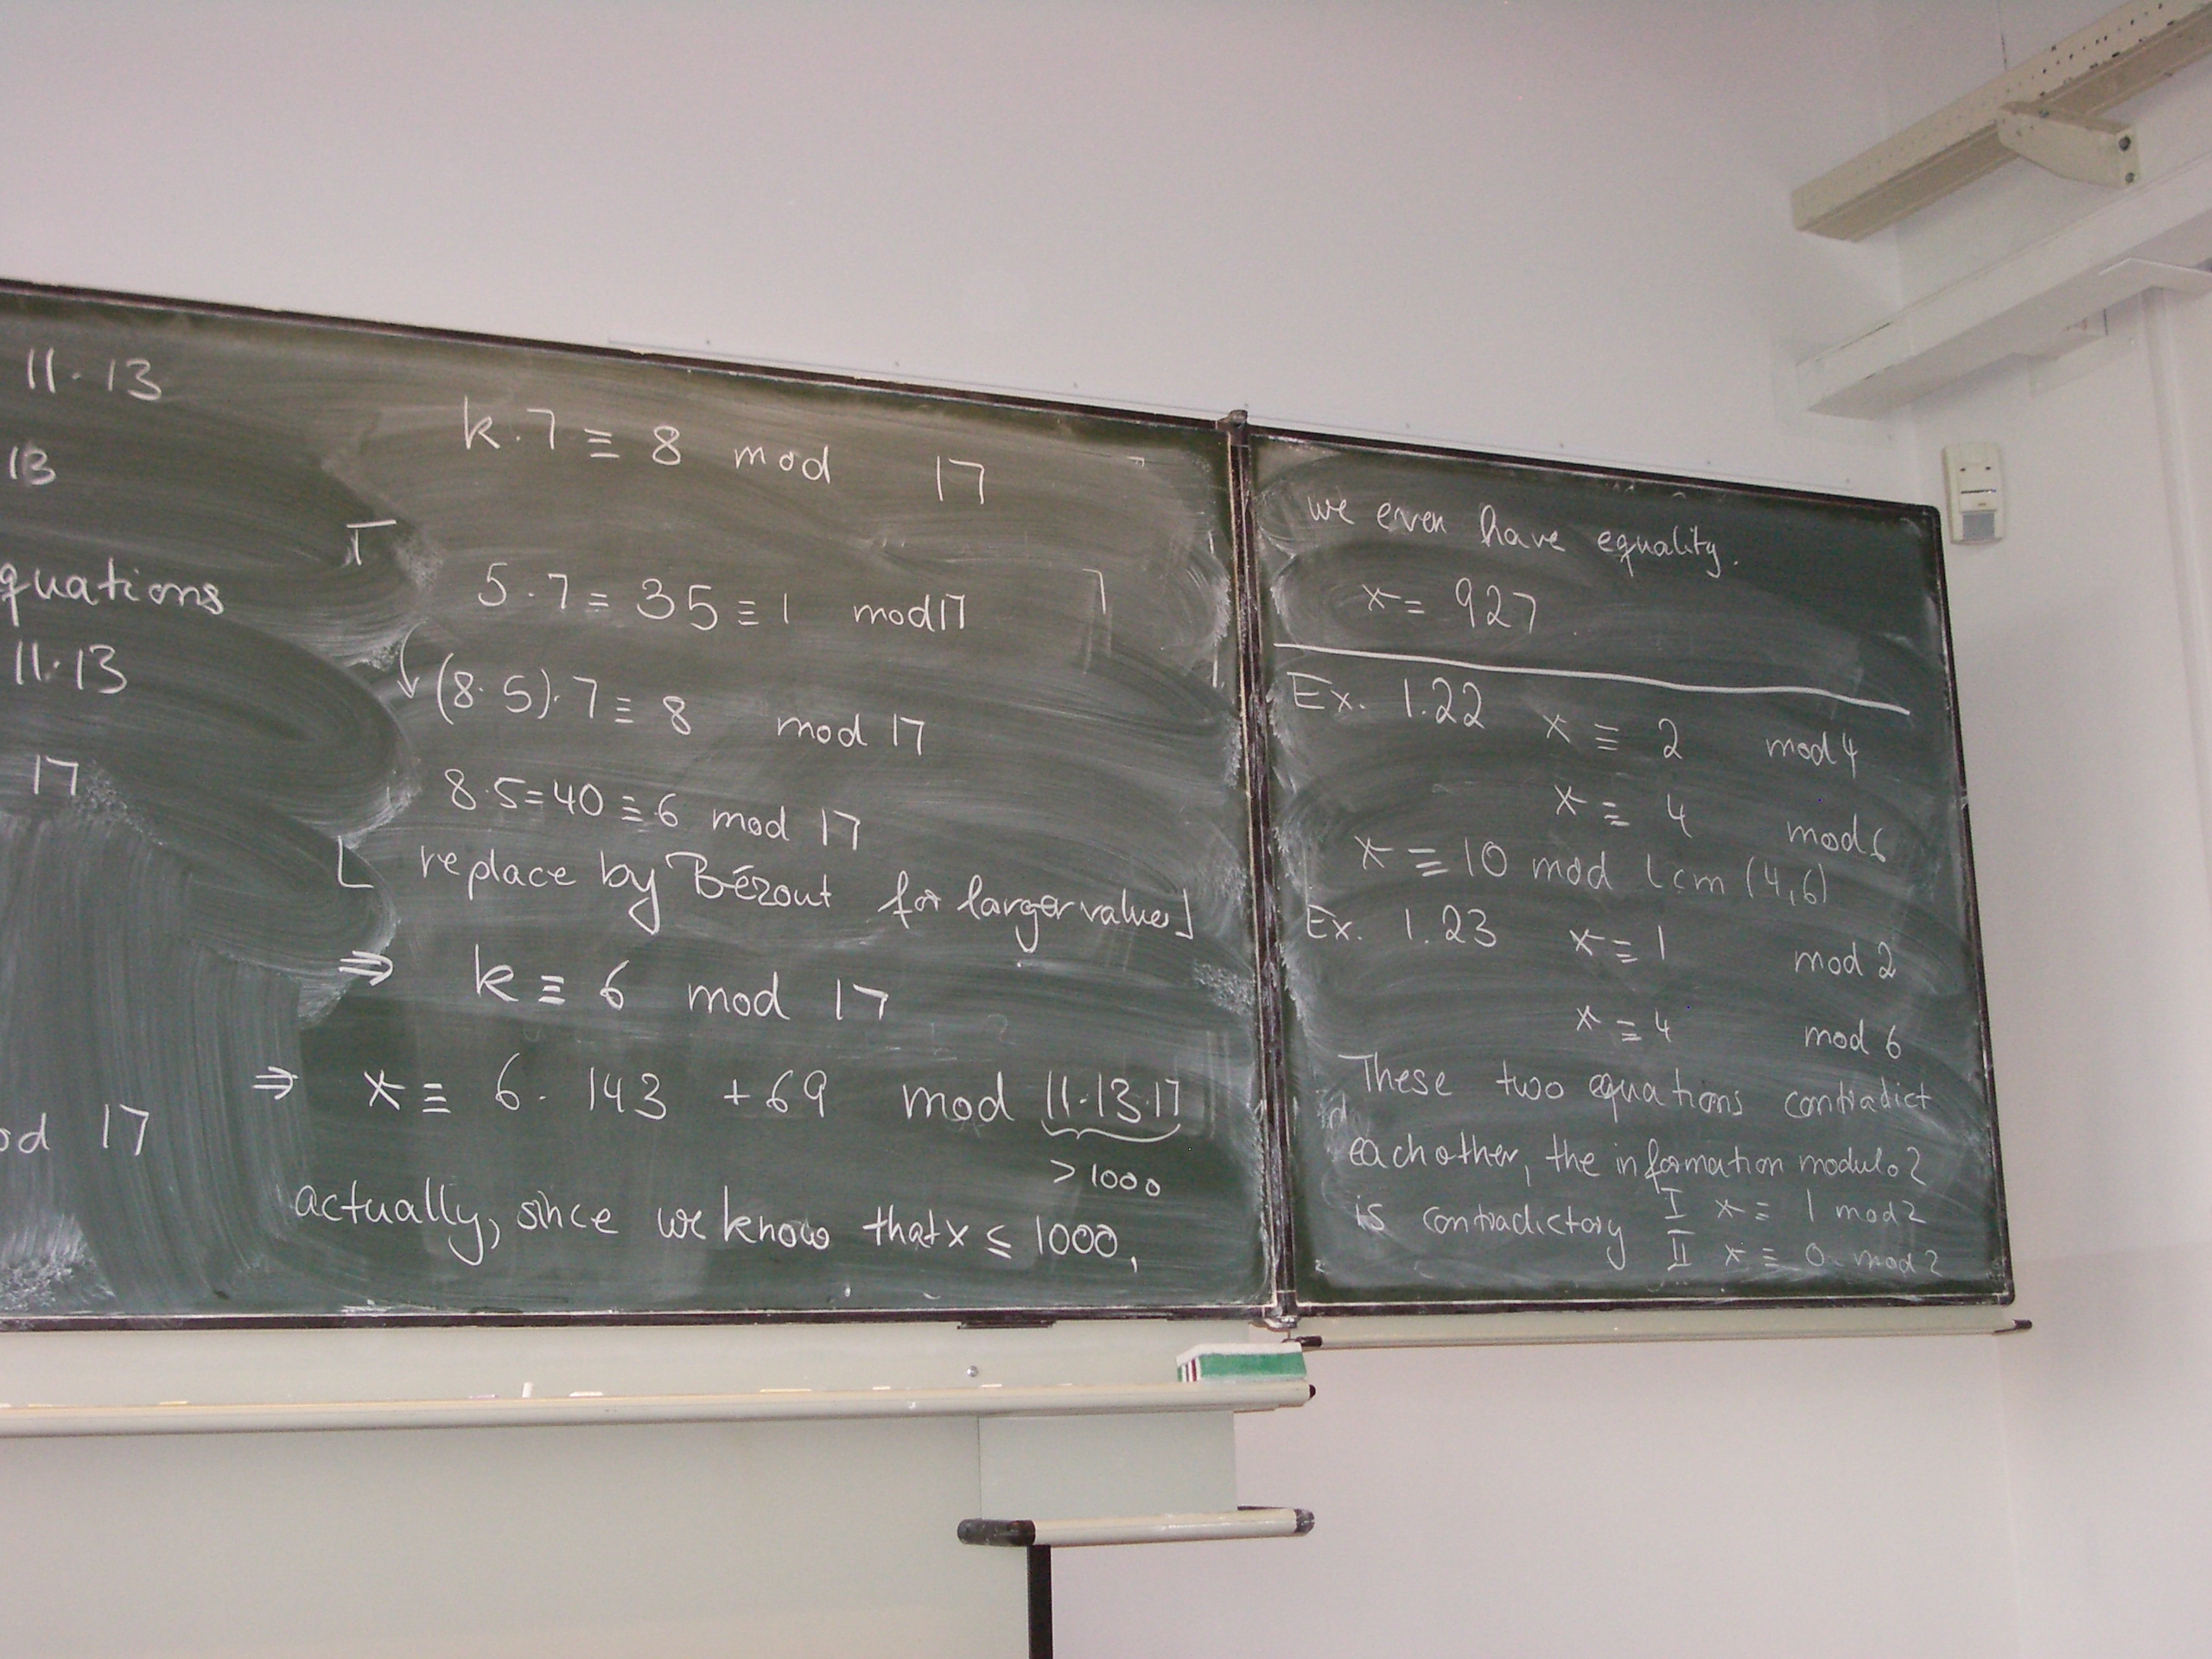 11·13
13
quations
11·13
17
od 17
k·7 ≡ 8 mod 17
5·7 = 35 ≡ 1 mod 17
(8·5)·7 ≡ 8 mod 17
8·5=40 ≡ 6 mod 17
replace by Bézout for larger values
⇒ k ≡ 6 mod 17
⇒ x ≡ 6·143 + 69 mod 11·13·17
>1000
actually, since we know that x ≤ 1000,
we even have equality.
x = 927
Ex. 1.22 x ≡ 2 mod 4
x ≡ 4 mod 6
x ≡ 10 mod lcm (4,6)
Ex. 1.23 x ≡ 1 mod 2
x ≡ 4 mod 6
These two equations contradict
each other, the information modulo 2
is contradictory I x ≡ 1 mod 2
II x ≡ 0 mod 2